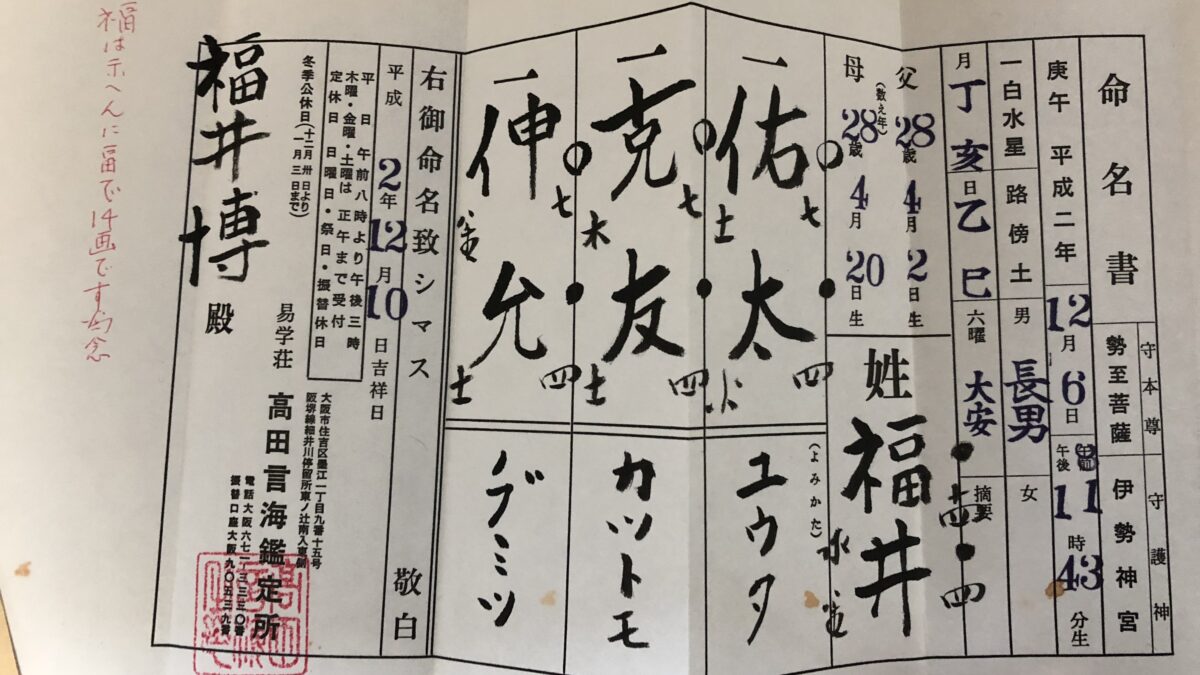 命名書
守本尊
勢至菩薩
守護神
伊勢神宮
庚午 平成二年 12月6日 午前
午後 11時43分生
一白水星 路傍土 男 長男 女
月 丁亥 日 乙巳 六曜 大安 摘要
父 28歳 4月2日生
(数え年)
母 28歳 4月20日生
姓 福井
十四 四
水
一 佑太
七 四
土
(よみかた)
ユウタ
一 克友
七 四
木 土
カツトモ
一 伸允
七 四
金 土
ノブミツ
右御命名致シマス 敬白
平成2年12月10日吉祥日
平日 午前八時より午後三時
木曜・金曜・土曜は正午まで受付
定休日 日曜日・祭日・振替休日
冬季公休日(十二月卅日より
一月三日まで)
大阪市住吉区墨江一丁目九番十五号
阪堺線細井川停留所東ノ辻南入東側
易学荘 高田言海鑑定所
電話大阪六七一-三三五〇番
振替口座大阪九〇五三九番
福井博殿
福は示へんに畐で14画です